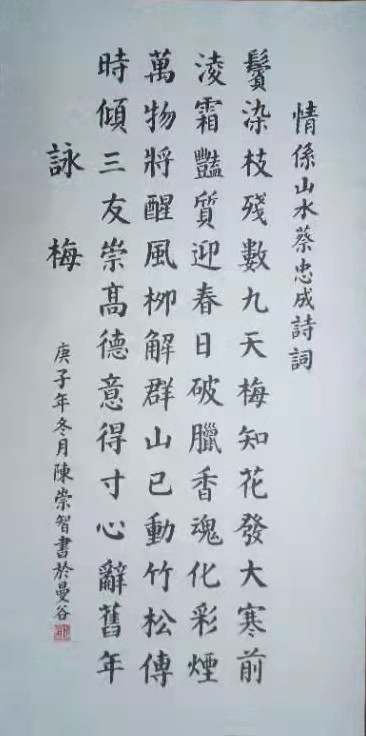 情係山水蔡忠成詩詞
鬢染枝殘數九天梅知花發大寒前
淩霜豔質迎春日破臘香魂化彩煙
萬物將醒風柳解群山已動竹松傳
時傾三友崇高德意得寸心辭舊年
詠梅
庚子年冬月陳崇智書於曼谷